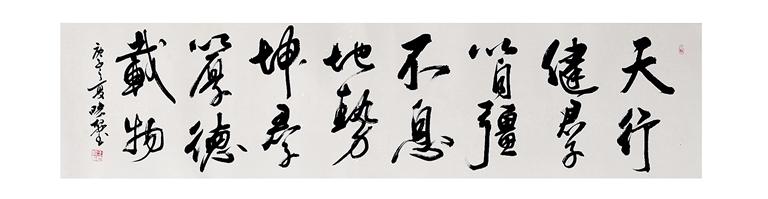 天行
健君子
以自彊
不息
地勢
坤君子
以厚德
載物
庚子之夏